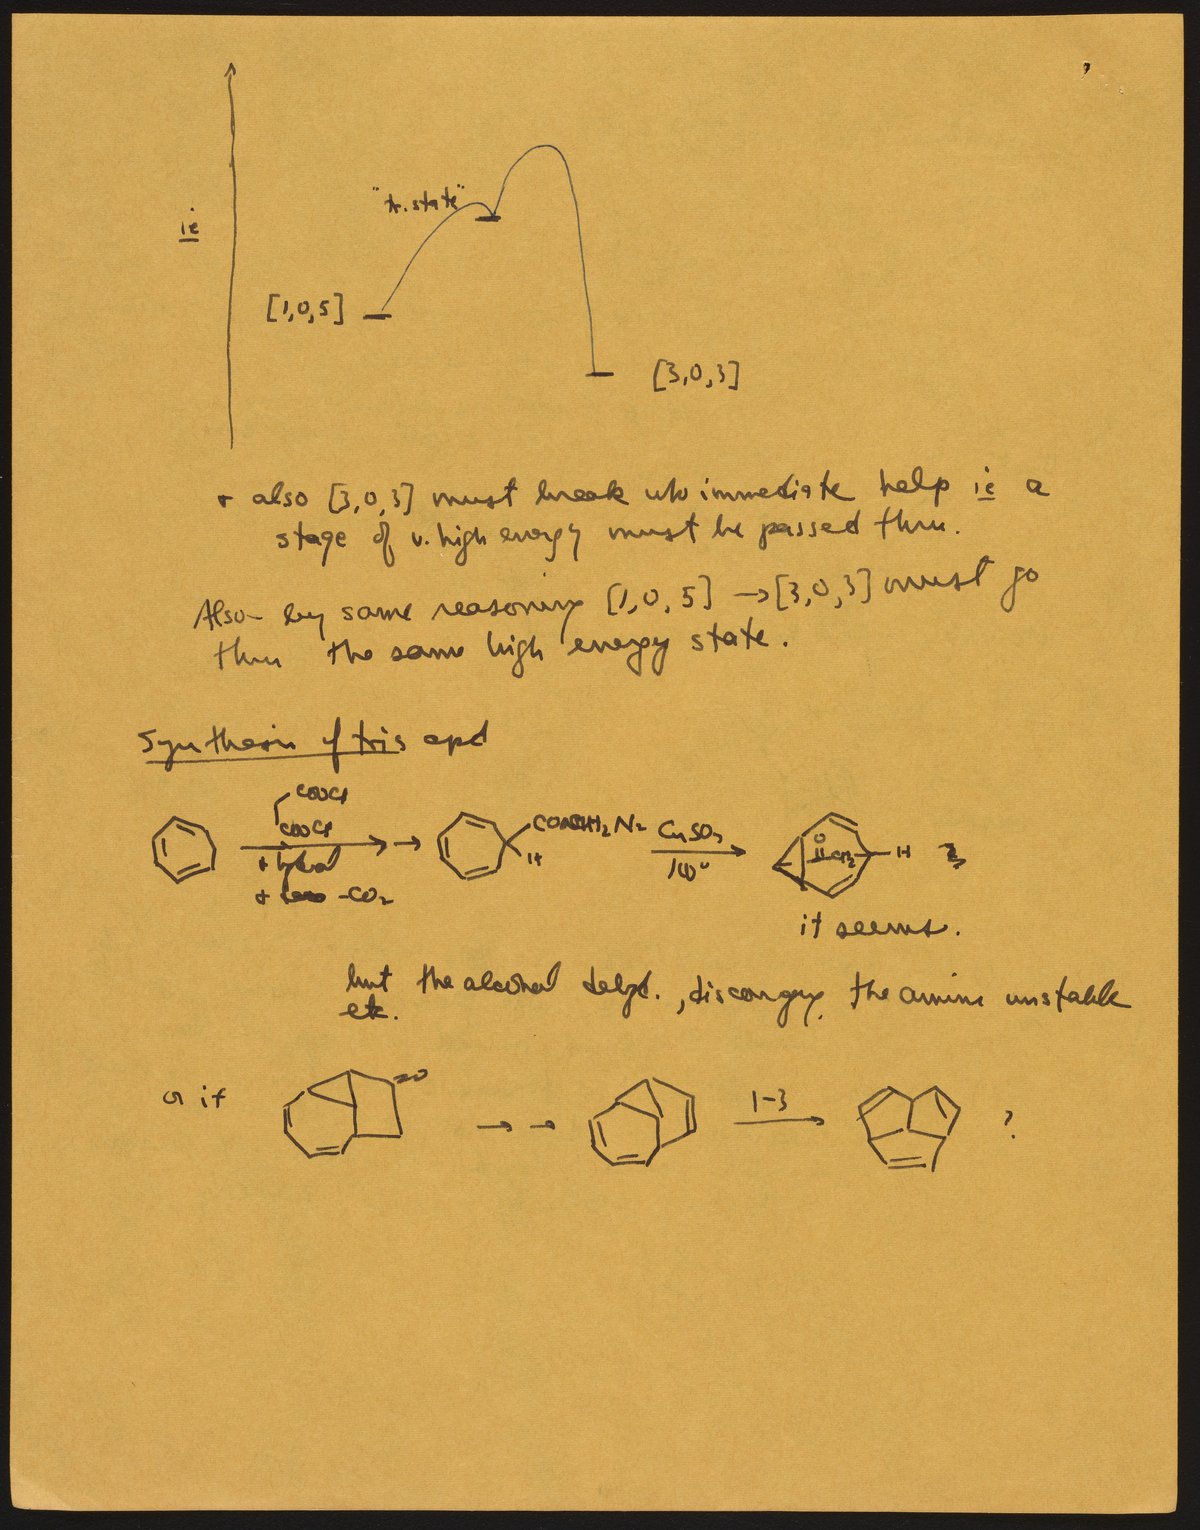 ie
"tr. state"
[1,0,5]
[3,0,3]
+ also [3,0,3] must break w/o immediate help ie a
stage of v. high energy must be passed thru.
Also by same reasoning [1,0,5] → [3,0,3] must go
thru the same high energy state.
Synthesis of this cpd
COCl
COCl
+ hydrol
+ -CO2
COCHN2
H
CuSO4
100°
O
CH2
H
it seems.
but the alcohol dehyd., the amine unstable
etc.
or if
=O
1-3
?